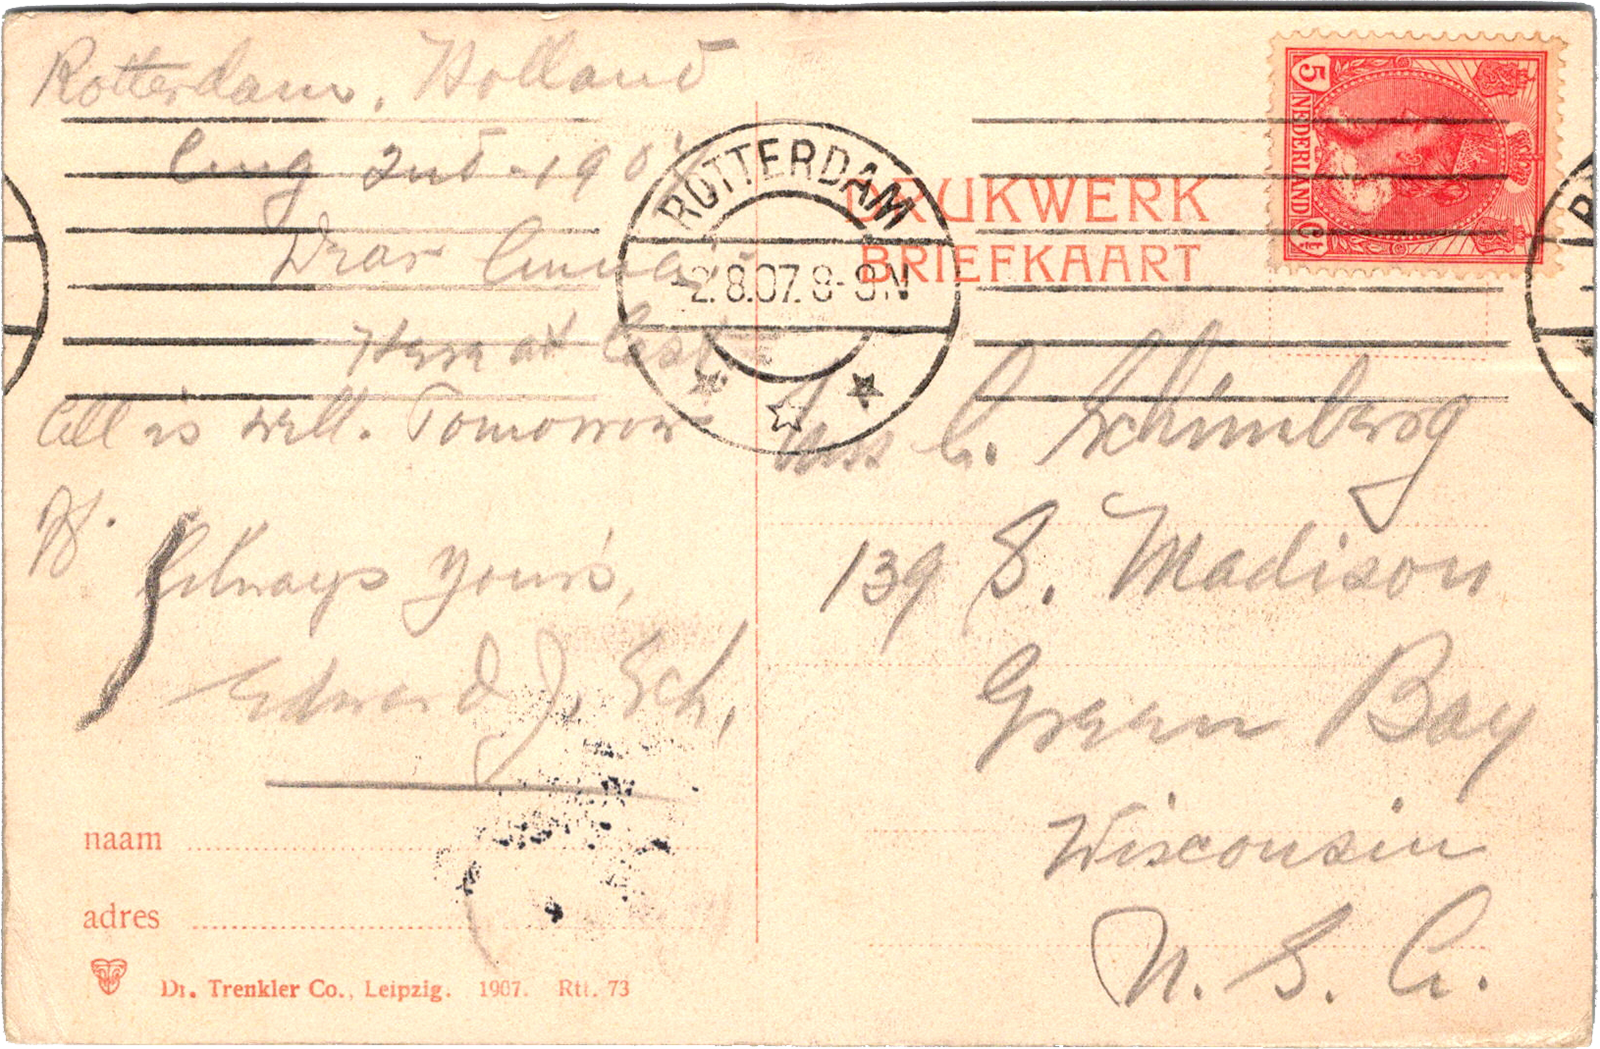 Rotterdam, Holland
Aug 2nd - 1907
Dear Anna
Here at last
All is well. Tomorrow
Always yours,
Edward J. Sch.
naam
adres
Dr. Trenkler Co., Leipzig. 1907. Rtt. 73
ROTTERDAM
2.8.07. 8-9N
DRUKWERK
BRIEFKAART
5
NEDERLAND
Ct
Miss A. Schümberg
139 S. Madison
Green Bay
Wisconsin
U. S. A.